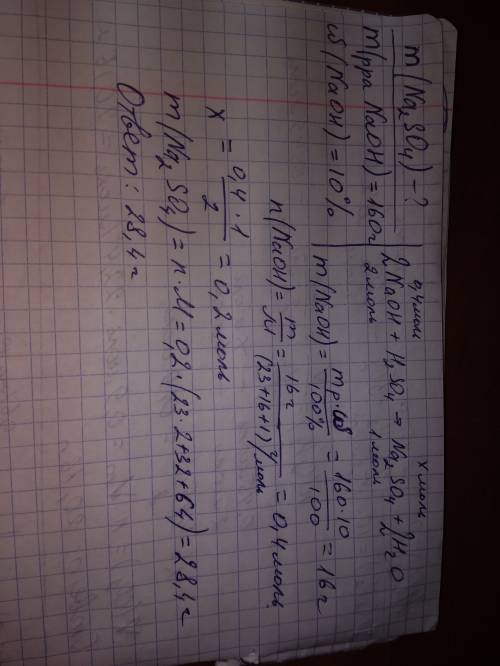 m(Na₂SO₄) - ?
m(р-ра NaOH) = 160г
ω(NaOH) = 10%
0,4моль x моль
2NaOH + H₂SO₄ → Na₂SO₄ + 2H₂O
2 моль 1 моль
m(NaOH) = mр·ω / 100% = 160·10 / 100 = 16г
n(NaOH) = m / M = 16г / (23+16+1)г/моль = 0,4 моль
x = 0,4·1 / 2 = 0,2 моль
m(Na₂SO₄) = n·M = 0,2·(23·2+32+64) = 28,4г
Ответ: 28,4г